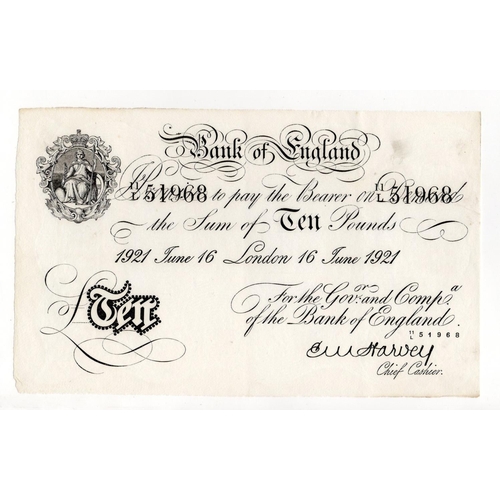 Bank of England
11/L 51968 to pay the Bearer on Demand 11/L 51968
the Sum of Ten Pounds
1921 June 16 London 16 June 1921
For the Govr. and Compa.
£Ten of the Bank of England.
11/L 51968
E M Harvey
Chief Cashier.